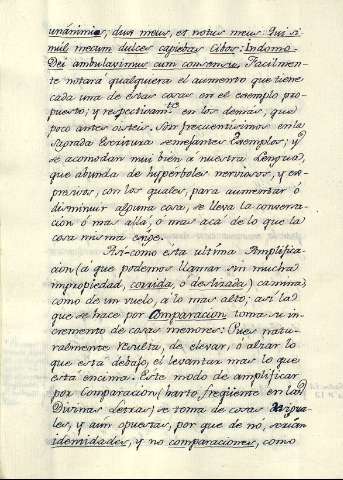 unánimis; dux meus, et notus meus: Qui si-
mul mecum dulces capiebas cibos: In domo
Dei ambulavimus cum consensu. Facilmen-
te notará qualquiera el aumento que tiene
cada una de estas cosas en el exemplo pro-
puesto; y respectivam.te en los demás, que
poco antes oísteis. Son frecuentísimos en la
Sagrada Escritura semejantes Exemplos; y
se acomodan mui bien a nuestra Lengua,
que abunda de hyperboles nerviosos, y ex-
presivos, con los quales, para aumentar ó
disminuir alguna cosa, se lleva la conversa-
ción ó mas allá, ó mas acá de lo que la
cosa misma exige.
Asi-como esta ultima Amplifica-
cion (a que podemos llamar sin mucha
impropiedad, corrida, ó deslizada) camina,
como de un vuelo, á lo mas alto; así la
que se hace por Comparacion toma su in-
cremento de cosas menores: Pues natu-
ralmente resulta, de elevar, ó alzar lo
que está debajo, el levantar mas lo que
está encima. Este modo de amplificar
por Comparacion (harto freqüente en las
Divinas Letras) se toma de cosas desigua-
les, y aun opuestas, por que de nó, serían
idemidades, y no comparaciones, como